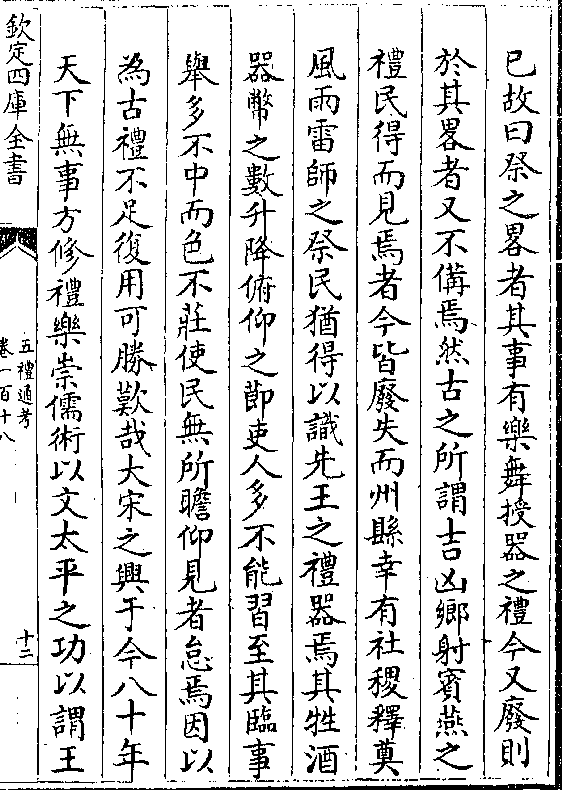 已故曰祭之畧者其事有樂舞授器之禮今又廢則
於其畧者又不備焉然古之所謂吉凶鄉射賔燕之
禮民得而見焉者今皆廢失而州縣幸有社稷釋奠
風雨雷師之祭民猶得以識先王之禮器焉其牲酒
器幣之數升降俯仰之節吏人多不能習至其臨事
舉多不中而色不莊使民無所瞻仰見者怠焉因以
為古禮不足復用可勝歎哉大宋之興于今八十年
天下無事方修禮樂崇儒術以文太平之功以謂王
欽定四庫全書
五禮通考
卷一百十八
十二